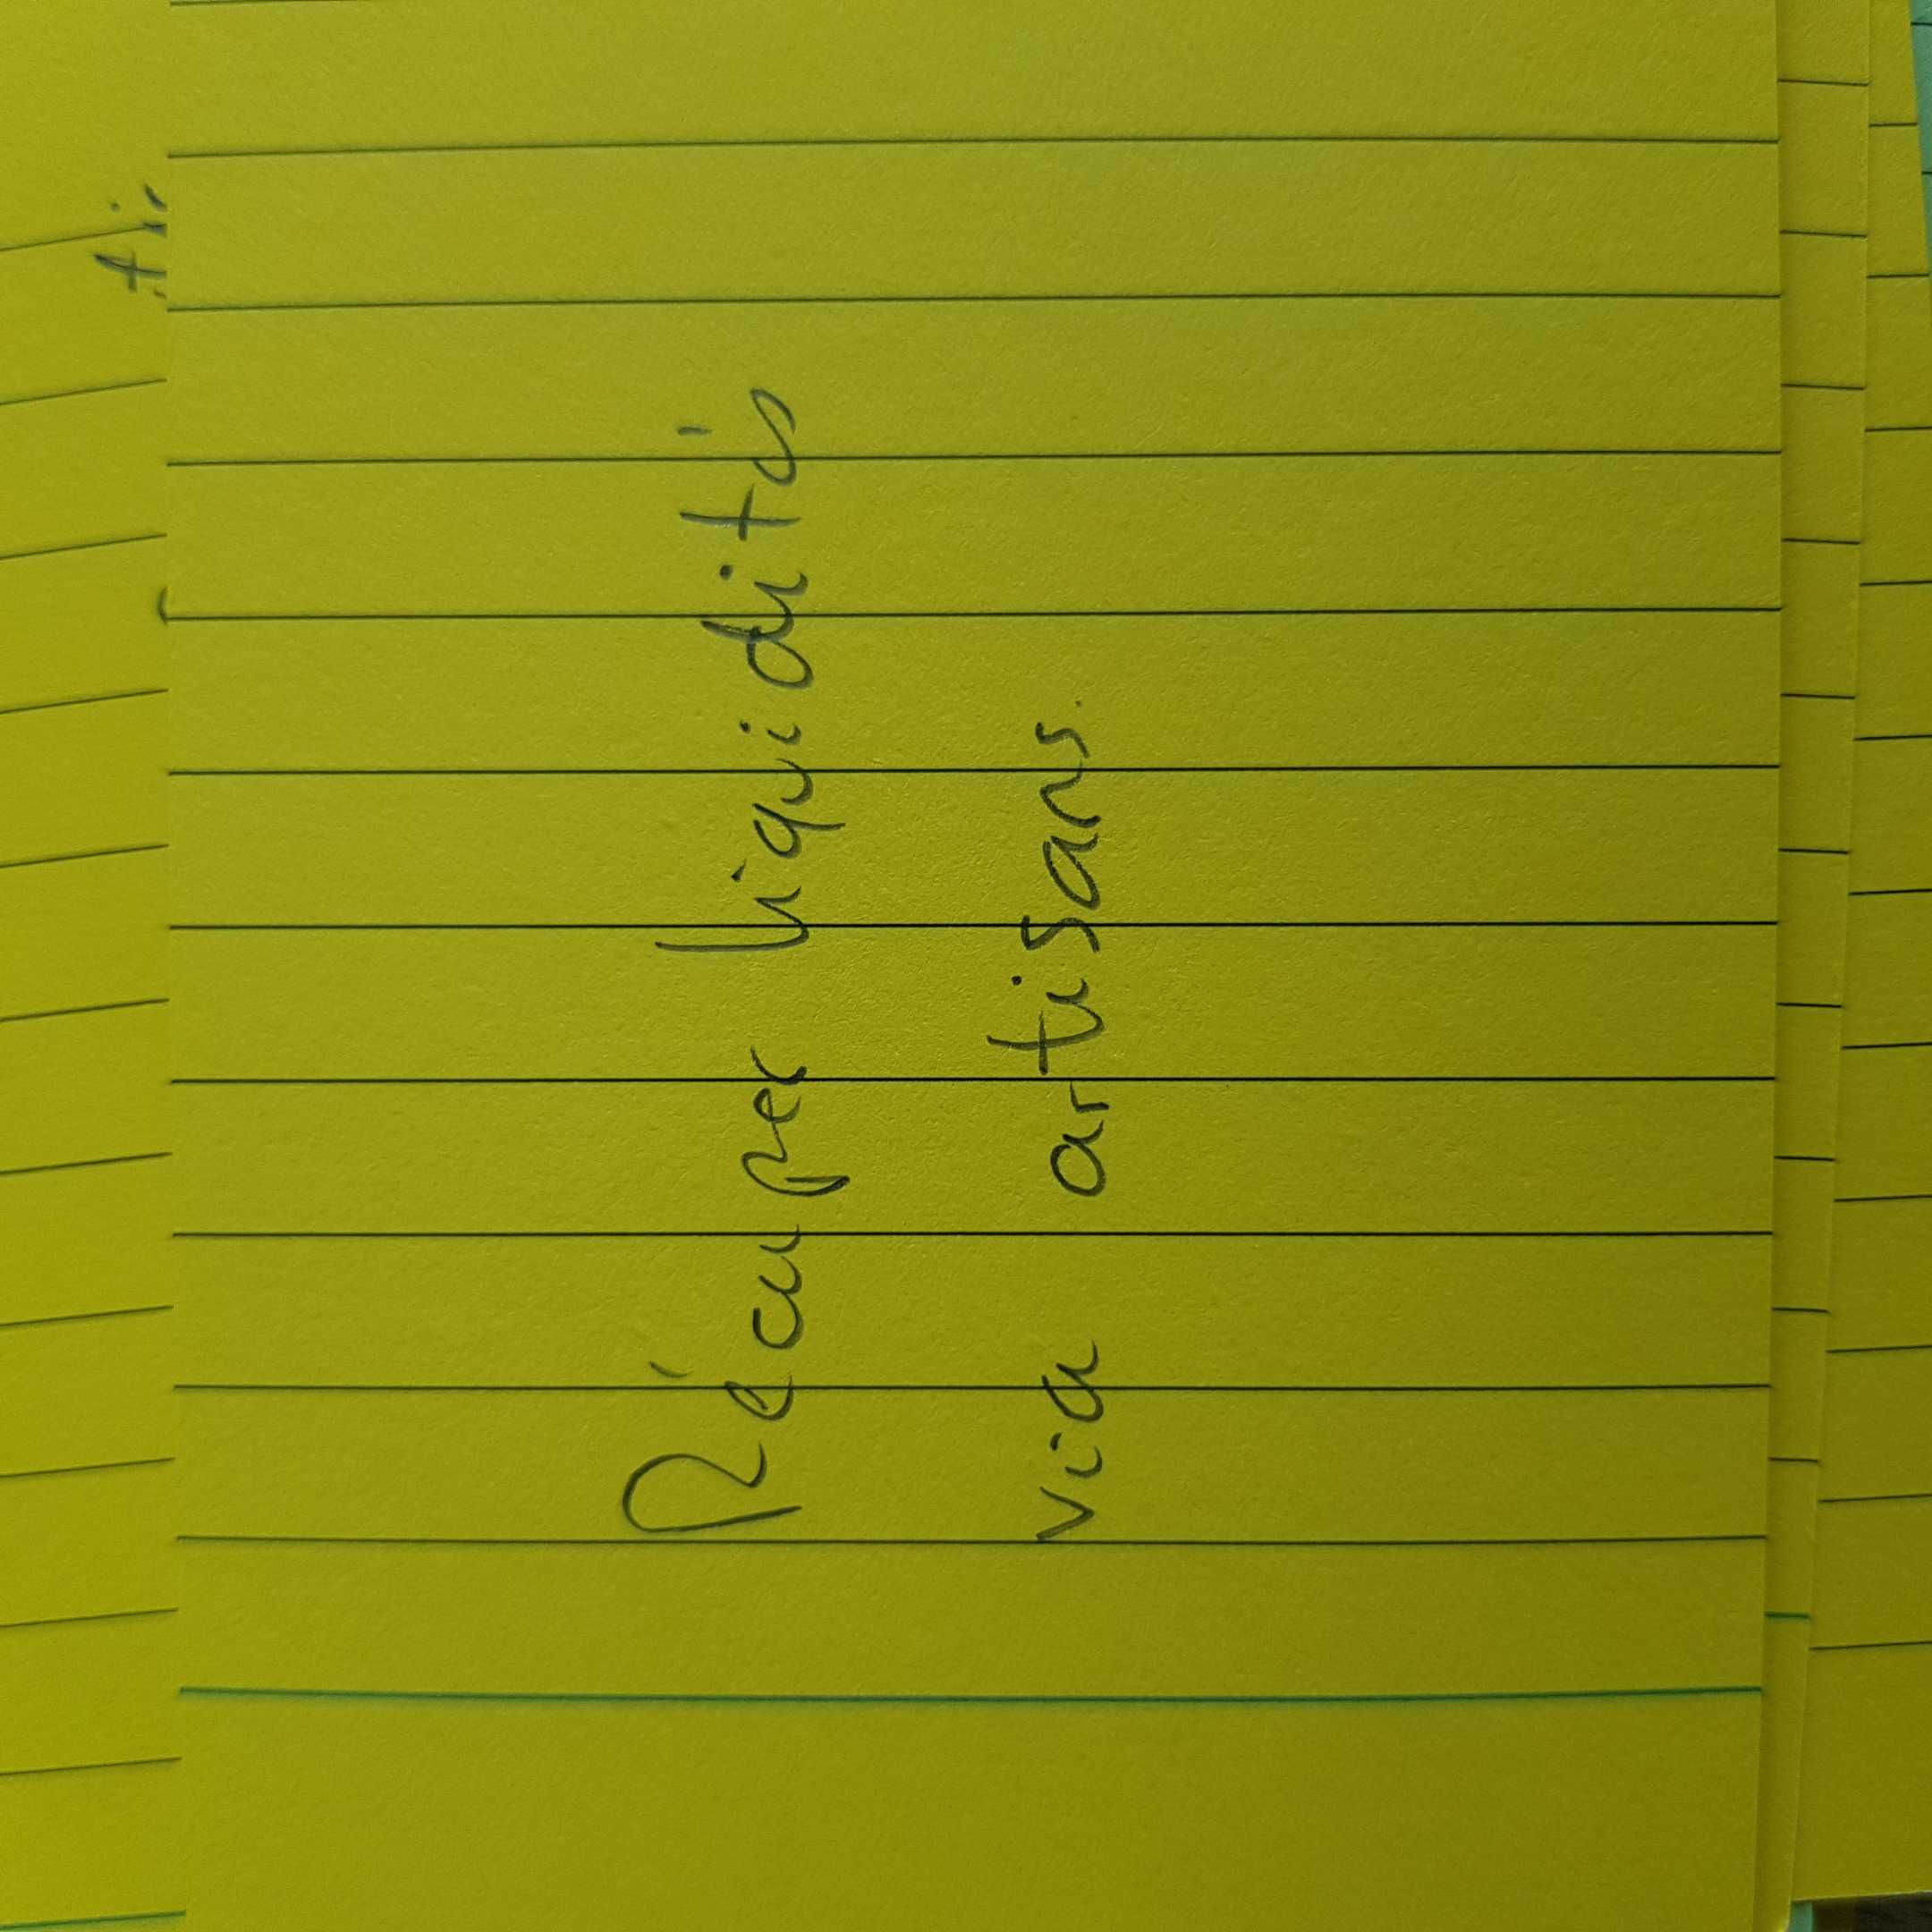 Récuper liquidités
via artisans.